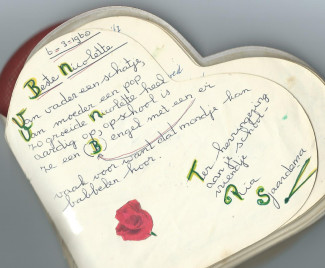 6-3-1960
Beste Nicolette
Van vader een schatje,
Van moeder een pop
zo groeide Nicolette heel
aardig op, op school is
ze een B engel met een er
vaak voor want dat mondje kan
babbelen hoor.
Ter herinnering
aan je school
vriendje
Pia
Sjaardema